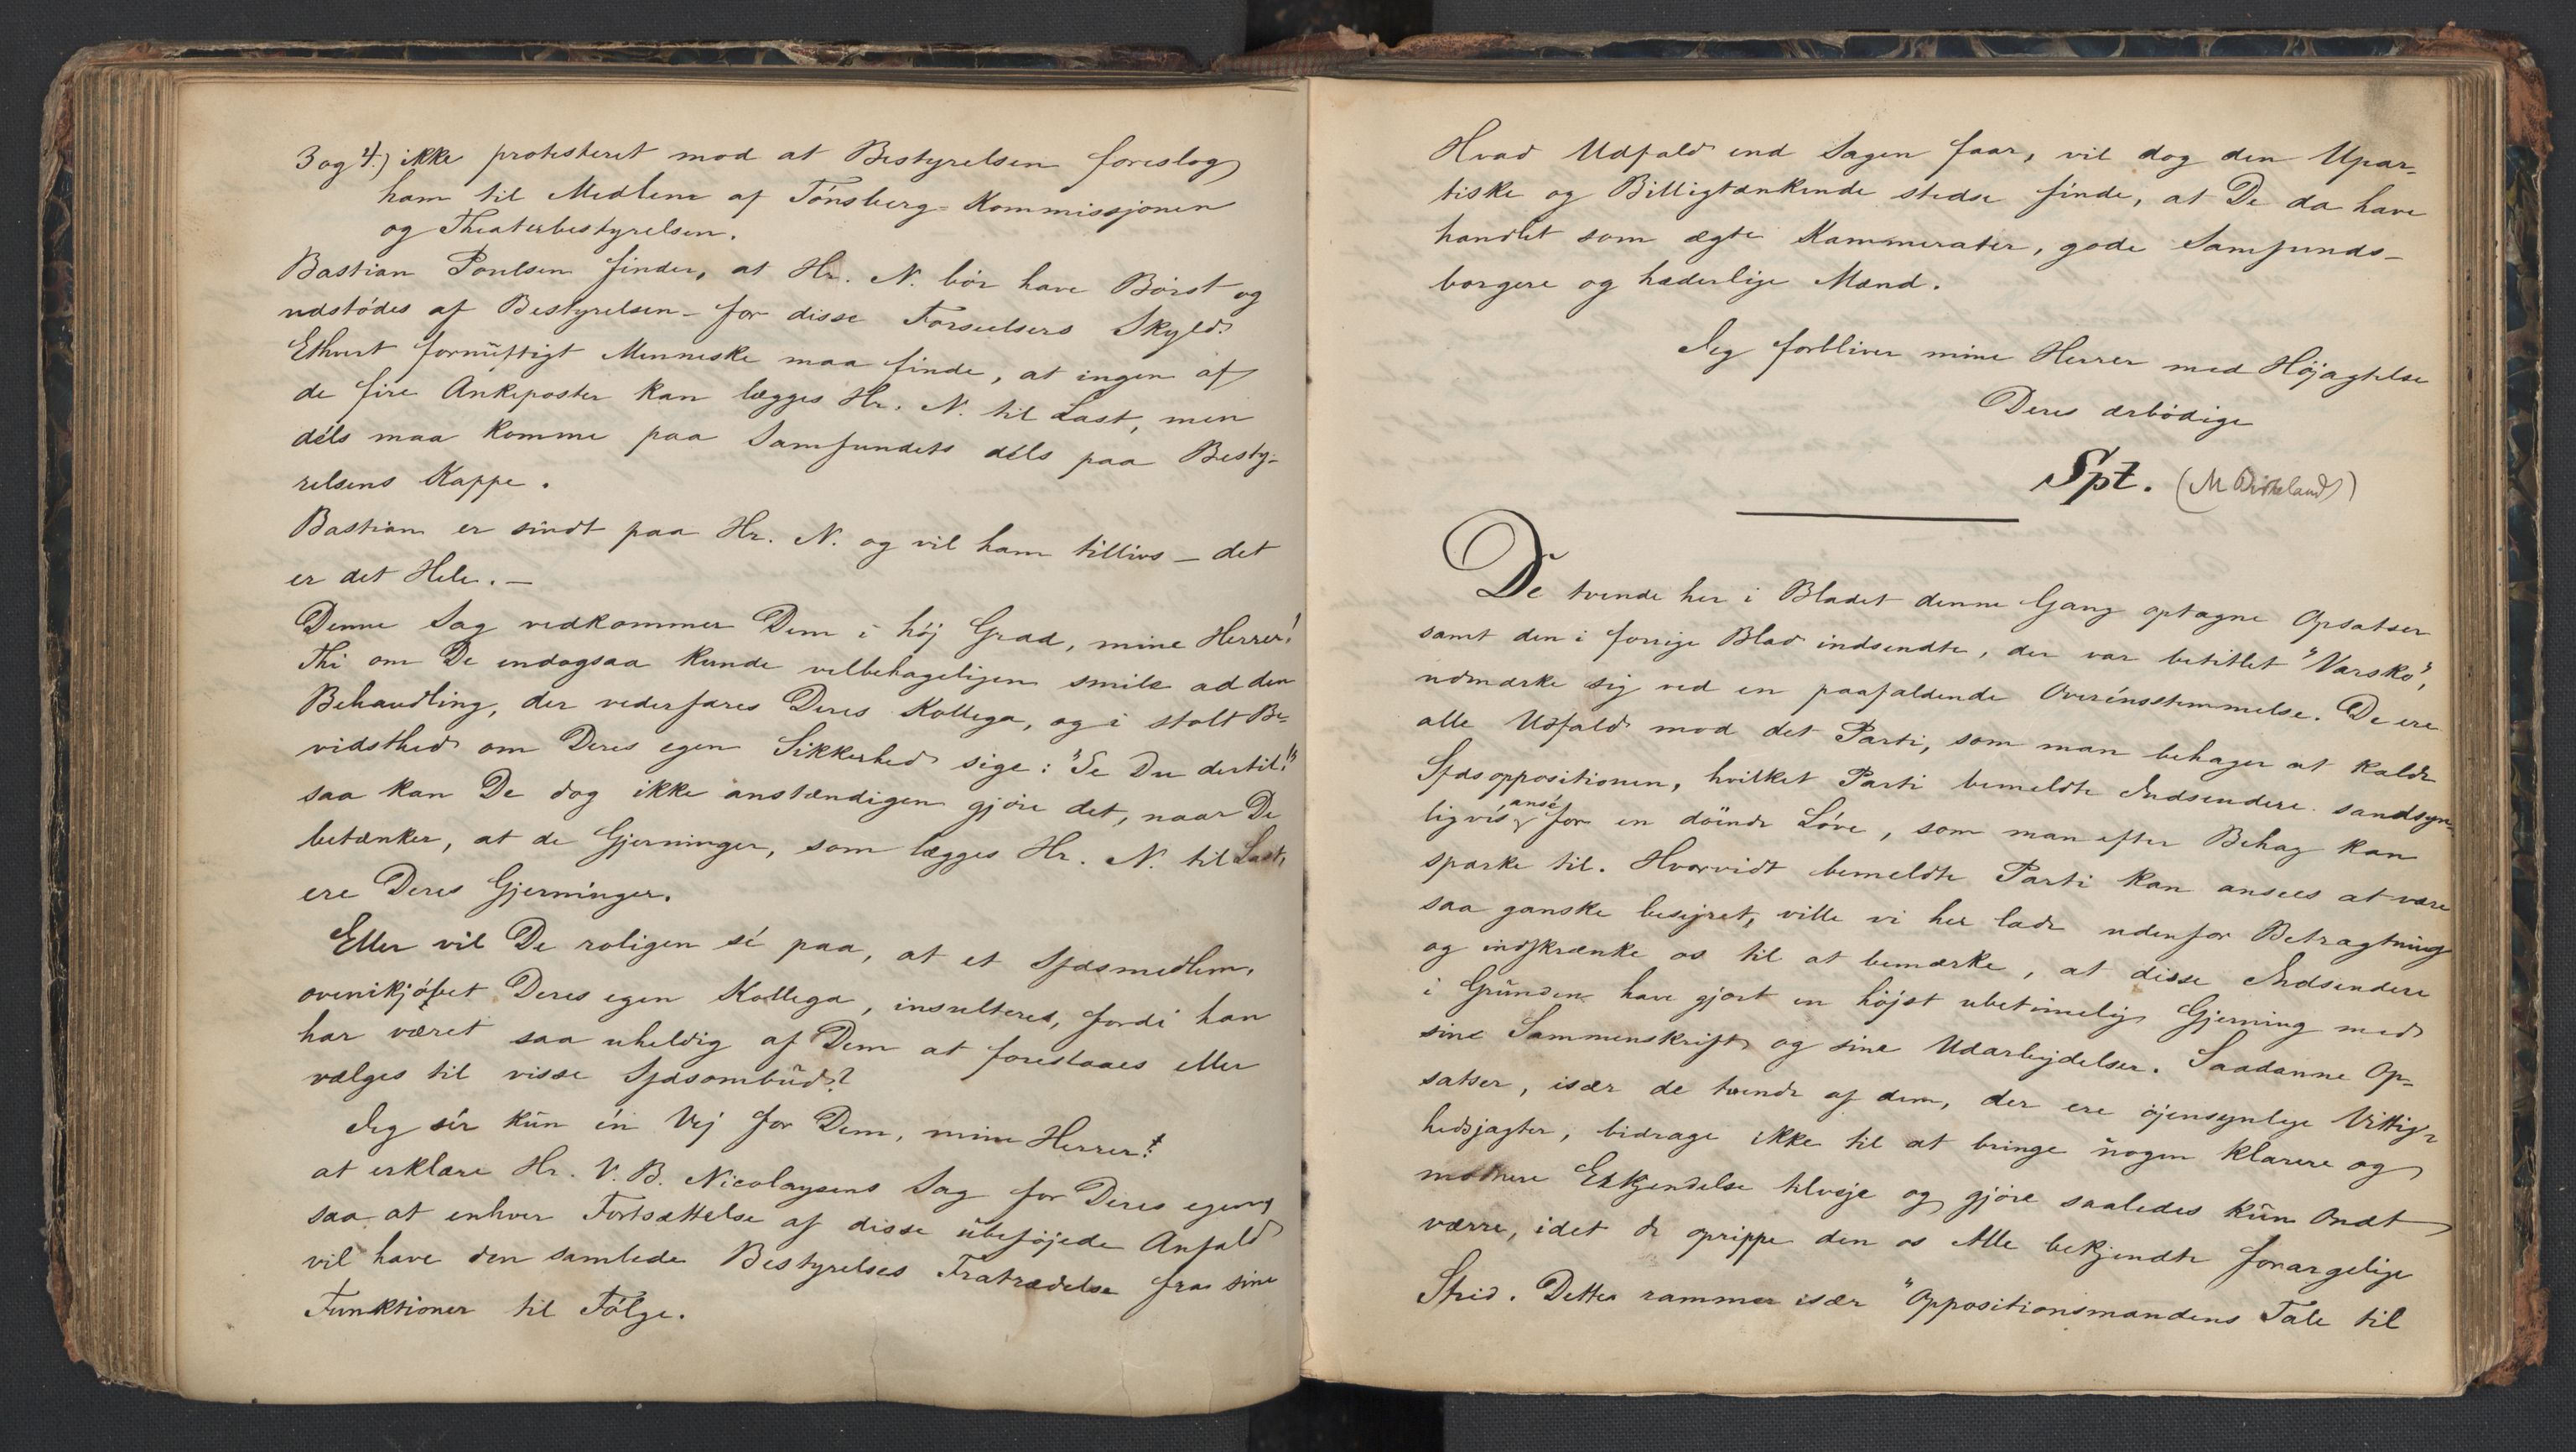 3 og 4.) ikke protesteret mod at Bestyrelsen foreslog
ham til Medlem af Tónsberg-Kommissjonen
og Theaterbestyrelsen.
Bastian Poulsen finder, at Hr. N. bór have Bórst og
udstódes af Bestyrelsen – for disse Forseelsers Skyld.
Ethvert fornuftigt Menneske maa finde, at ingen af
de fire Ankeposter kan lægges Hr. N. til Last, men
déls maa komme paa Samfundets déls paa Besty-
relsens Kappe.
Bastian er sindt paa Hr. N. og vil ham tillivs – det
er det Hele. –
Denne Sag vedkommer Dem i höj Grad, mine Herrer!
Thi om De endogsaa kunde velbehageligen smile ad den
Behandling, der vederfares Deres Kollega, og i stolt Be-
vidsthed om Deres egen Sikkerhed sige: "Se Du dertil!"
saa kan De dog ikke anstændigen gjóre det, naar De
betænker, at de Gjerninger, som lægges Hr. N. til Last,
ere Deres Gjerninger.
Eller vil De roligen sé paa, at et Sfdsmedlem,
ovenikjóbet Deres egen Kollega, insulteres, fordi han
har været saa uheldig af Dem at foreslaaes eller
vælges til visse Sfdsombud?
Jeg sér kun én Vej for Dem, mine Herrer!
at erklære Hr. V. B. Nicolaysens Sag for Deres egen,
saa at enhver Fortsættelse af disse ubeföjede Anfald
vil have den samlede Bestyrelses Fratrædelse fra sine
Funktioner til Fölge.
Hvad Udfald end Sagen faar, vil dog den Upar-
tiske og Billigtænkende stedse finde, at De da have
handlet som ægte Kammerater, gode Samfunds-
borgere og hæderlige Mænd.
Jeg forbliver mine Herrer med Höjagtelse
Deres ærbödige
Spt. (M Birkeland)
De tvende her i Bladet denne Gang optagne Opsatser
samt den i forrige Blad indsendte, der var betitlet "Varsko",
udmærke sig ved en paafaldende Overénsstemmelse. De ere
alle Udfald mod det Parti, som man behager at kalde
Sfdsoppositionen, hvilket Parti bemeldte Indsendere sandsyn-
ligvis ansé for en döende Löve, som man efter Behag kan
sparke til. Hvorvidt bemeldte Parti kan ansees at være
saa ganske besejret, ville vi her lade udenfor Betragtning
og indskrænke os til at bemærke, at disse Indsendere
i Grunden have gjort en höjst ubetimelig Gjerning med
sine Sammenskrift og sine Udarbejdelser. Saadanne Op-
satser, især de tvende af dem, der ere öjensynlige Vittig-
hedsjagter, bidrage ikke til at bringe nogen klarere og
modnere Erkjendelse tilveje og gjöre saaledes kun Ondt
værre, idet de oprippe den os Alle bekjendte forargelige
Strid. Dette rammer især "Oppositionsmandens Tale til